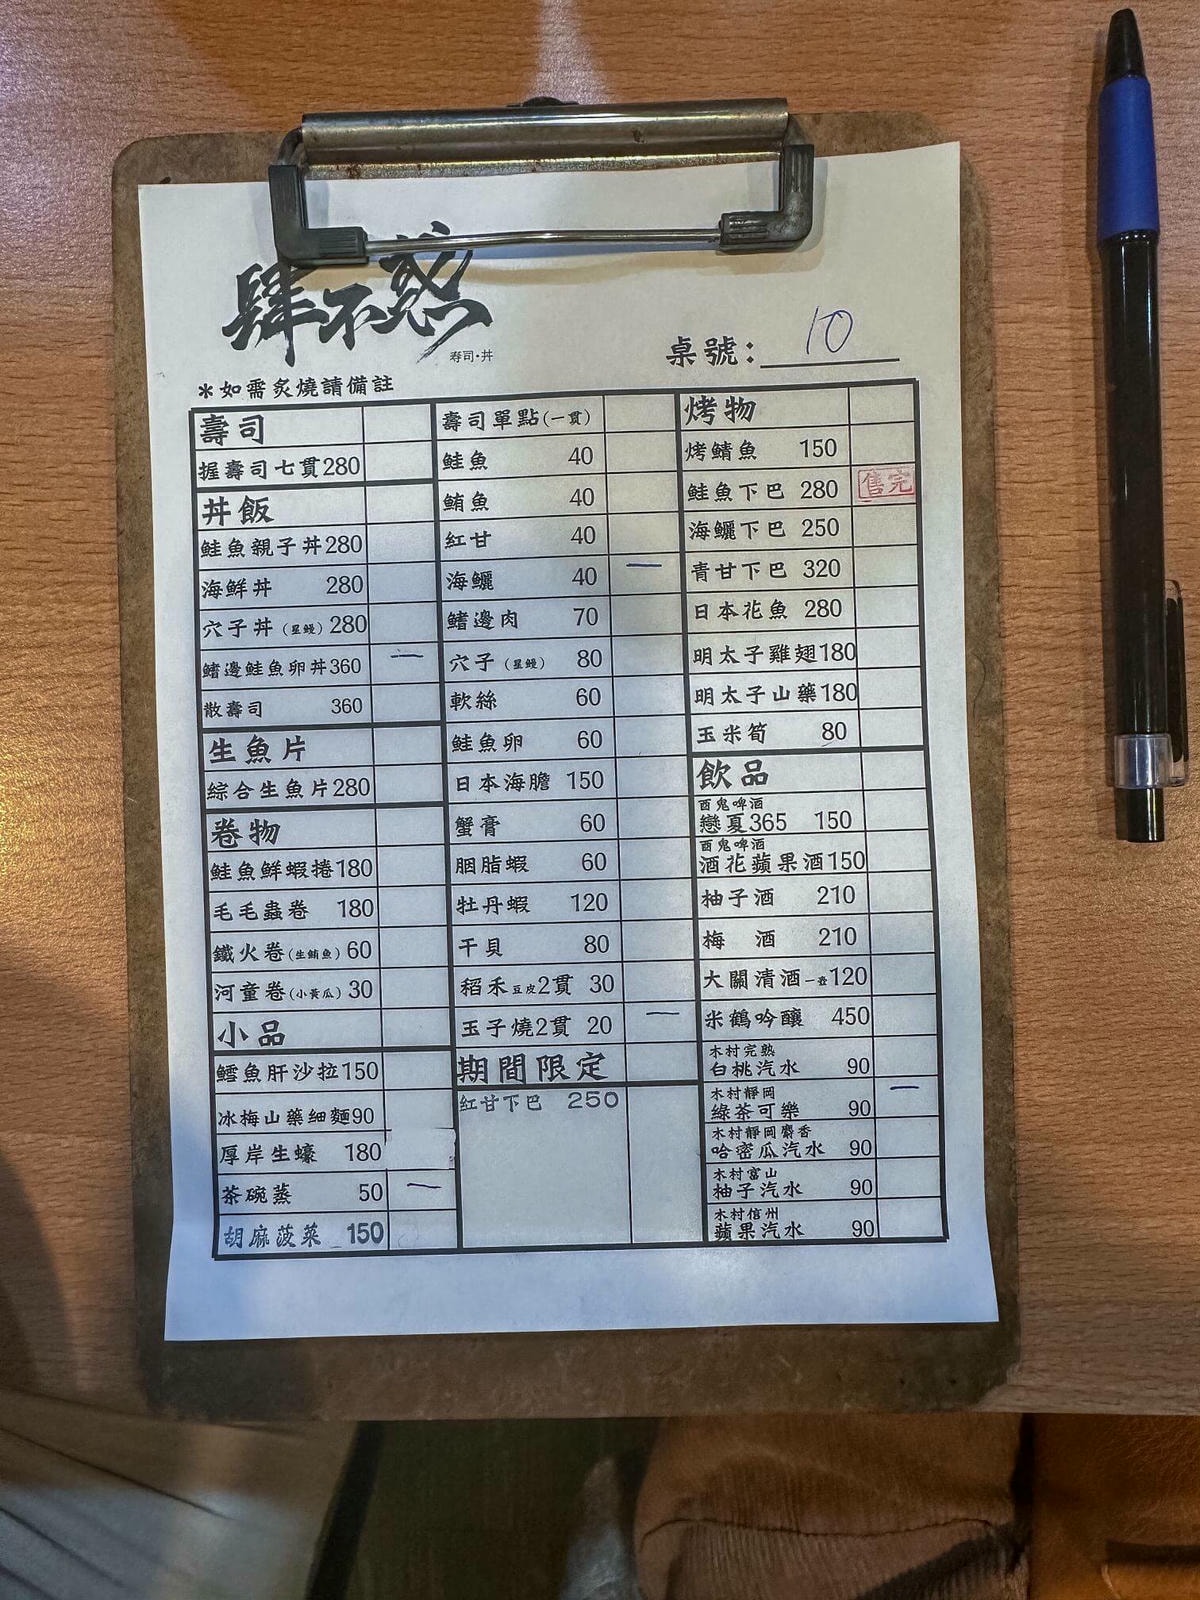 肆不惑
寿司·丼
桌號：10
＊如需炙燒請備註
壽司
握壽司七貫280
丼飯
鮭魚親子丼280
海鮮丼 280
穴子丼(星鰻) 280
鰭邊鮭魚卵丼360 一
散壽司 360
生魚片
綜合生魚片280
卷物
鮭魚鮮蝦捲180
毛毛蟲卷 180
鐵火卷(生鮪魚) 60
河童卷(小黃瓜) 30
小品
鱈魚肝沙拉150
冰梅山藥細麵90
厚岸生蠔 180
茶碗蒸 50 一
胡麻菠菜 150
壽司單點(一貫)
鮭魚 40
鮪魚 40
紅甘 40
海鱺 40 一
鰭邊肉 70
穴子(星鰻) 80
軟絲 60
鮭魚卵 60
日本海膽 150
蟹膏 60
胭脂蝦 60
牡丹蝦 120
干貝 80
稻禾豆皮2貫 30
玉子燒2貫 20 一
期間限定
紅甘下巴 250
烤物
烤鯖魚 150
鮭魚下巴 280 售完
海鱺下巴 250
青甘下巴 320
日本花魚 280
明太子雞翅180
明太子山藥180
玉米筍 80
飲品
酉鬼啤酒
戀夏365 150
酉鬼啤酒
酒花蘋果酒150
柚子酒 210
梅 酒 210
大關清酒一壺120
米鶴吟釀 450
木村完熟
白桃汽水 90
木村靜岡
綠茶可樂 90 一
木村靜岡麝香
哈密瓜汽水 90
木村富山
柚子汽水 90
木村信州
蘋果汽水 90